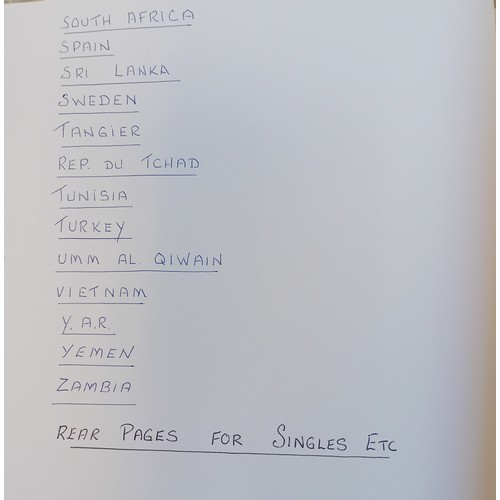 SOUTH AFRICA
SPAIN
SRI LANKA
SWEDEN
TANGIER
REP. DU TCHAD
TUNISIA
TURKEY
UMM AL. QIWAIN
VIETNAM
Y. A.R.
YEMEN
ZAMBIA
REAR PAGES FOR SINGLES ETC